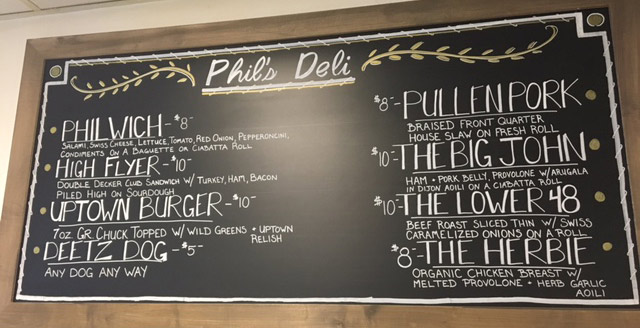 Phil's Deli
PHILWICH-$8-
SALAMI, SWISS CHEESE, LETTUCE, TOMATO, RED ONION, PEPPERONCINI,
CONDIMENTS ON A BAGUETTE OR CIABATTA ROLL
HIGH FLYER-$10-
DOUBLE DECKER CLUB SANDWICH W/ TURKEY, HAM, BACON
PILED HIGH ON SOURDOUGH
UPTOWN BURGER-$10-
7OZ. GR. CHUCK TOPPED W/ WILD GREENS + UPTOWN
RELISH
DEETZ DOG-$5-
ANY DOG ANY WAY
$8-PULLEN PORK
BRAISED FRONT QUARTER
HOUSE SLAW ON FRESH ROLL
$10-THE BIG JOHN
HAM + PORK BELLY, PROVOLONE W/ARUGALA
IN DIJON AOILI ON A CIABATTA ROLL
$10-THE LOWER 48
BEEF ROAST SLICED THIN W/ SWISS
CARAMELIZED ONIONS ON A ROLL
$8-THE HERBIE
ORGANIC CHICKEN BREAST W/
MELTED PROVOLONE + HERB GARLIC
AOILI